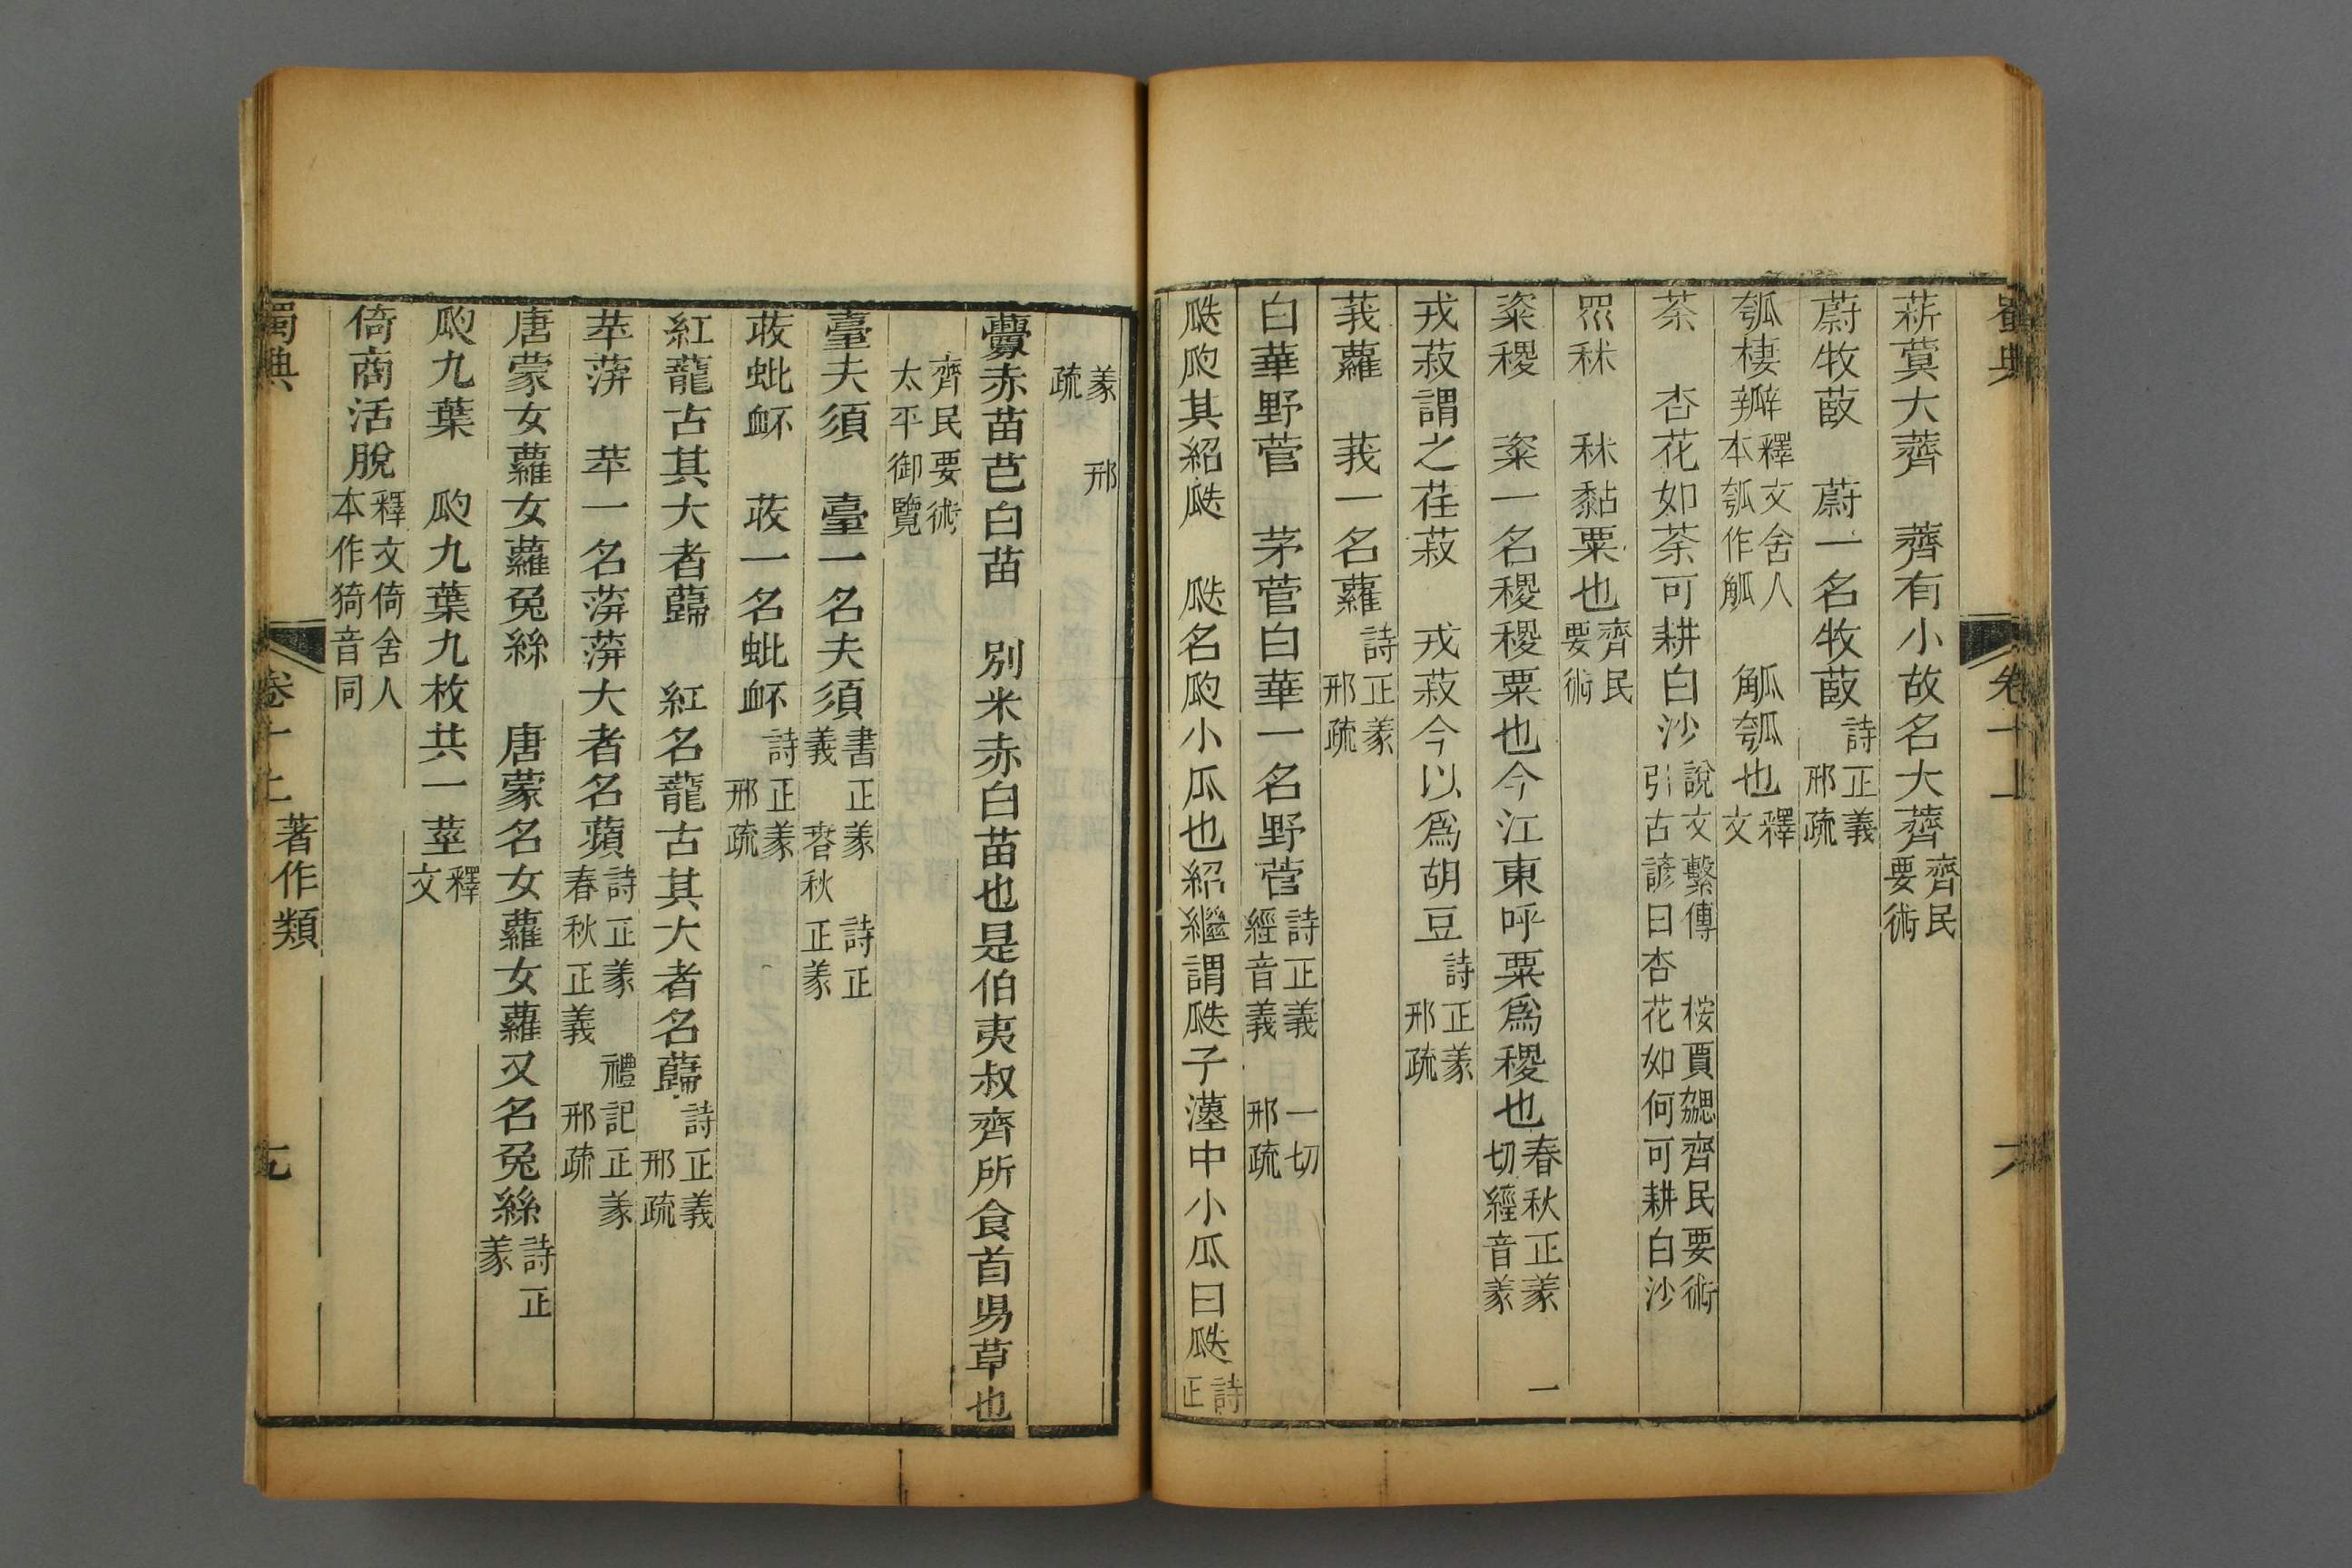 蜀典 卷十上 六
菥蓂大薺 薺有小故名大薺齊民要術
蔚牡菣 蔚一名牡菣詩正義 邢疏
瓠棲瓣釋文舍人本瓠作觚 觚瓠也釋文
荼 杏花如荼可耕白沙說文繫傳引古諺曰杏花如何可耕白沙 桉賈勰齊民要術
𥝩秫 秫黏粟也齊民要術
粢稷 粢一名稷稷粟也今江東呼粟爲稷也春秋正義 一切經音義
戎菽謂之荏菽 戎菽今以爲胡豆詩正義 邢疏
莪蘿 莪一名蘿詩正義 邢疏
白華野菅 茅菅白華一名野菅詩正義 一切經音義 邢疏
瓞瓝其紹瓞 瓞名瓝小瓜也紹繼謂瓞子漢中小瓜曰瓞詩正
義 邢疏
虋赤苗芑白苗 別米赤白苗也是伯夷叔齊所食首昜草也
齊民要術 太平御覽
臺夫須 臺一名夫須書正義 詩正義 春秋正義
荍蚍衃 荍一名蚍衃詩正義 邢疏
紅蘢古其大者蘬 紅名蘢古其大者名蘬詩正義 邢疏
苹蓱 苹一名蓱蓱大者名蘋詩正義 春秋正義 禮記正義 邢疏
唐蒙女蘿女蘿兔絲 唐蒙名女蘿女蘿又名兔絲詩正義
瓝九葉 瓝九葉九枚共一莖釋文
倚商活脫釋文倚舍人本作猗音同
蜀典 卷十上 著作類 七